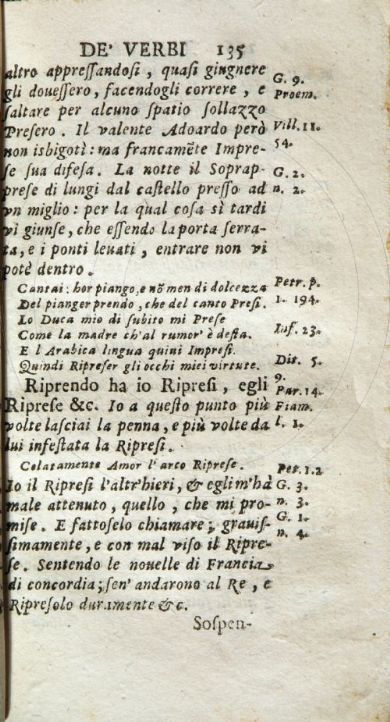 DE' VERBI 135
altro appreſſandoſi, quaſi giugnere G. 9.
gli doueſſero, facendogli correre, e Proem.
ſaltare per alcuno ſpatio ſollazzo
Preſero. Il valente Adoardo però Vill. 11.
non isbigotì: ma francamẽte Impre- 54.
ſe ſua difeſa. La notte il Soprap- G. 2.
preſe di lungi dal caſtello preſſo ad n. 2.
vn miglio: per la qual coſa sì tardi
vi giunſe, che eſſendo la porta ſerra-
ta, e i ponti leuati, entrare non vi
potè dentro.
Cantai: hor piango, e nõ men di dolcezza Petr. p.
Del pianger prendo, che del canto Preſi. 1. 194.
Lo Duca mio di ſubito mi Preſe
Come la madre ch'al rumor' è deſta. Inf. 23.
E l'Arabica lingua quini Impreſi. Dit. 5.
Quindi Ripreſer gli occhi miei virtute. 9.
Riprendo ha io Ripreſi, egli Par. 14.
Ripreſe &c. Io a queſto punto più Fiam.
volte laſciai la penna, e più volte da l. 1.
lui infeſtata la Ripreſi.
Celatamente Amor l'arco Ripreſe. Petr. 1. 2
Io il Ripreſi l'altr'hieri, & egli m'hà G. 3.
male attenuto, quello, che mi pro- n. 3.
miſe. E fattoſelo chiamare; grauiſ- G. 1.
ſimamente, e con mal viſo il Ripre- n. 4.
ſe. Sentendo le nouelle di Francia
di concordia; ſen' andarono al Re, e
Ripreſolo duramente &c.
Soſpen-